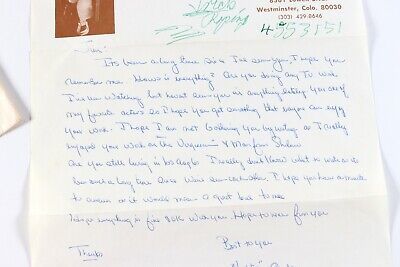 Westminster, Colo. 80030
(303) 429-0646
Its been a long time since I've seen you, I hope you
remember me. How is everything? Are you doing any TV work
I've been watching but havent seen you in anything lately you are of
my favorite actors so I hope you get something that we you can enjoy
you work. I hope I am not bothering you by writing as I really
enjoyed your work on the Virginian & Man from Shiloh
Are you still living in Los Angeles I really don't know what to write as
its been such a long time since we've seen each other. I hope you have a minute
to answer as it would mean a great deal to me
hope everything is fine & OK with you. Hope to hear from you
Thanks
Best to you